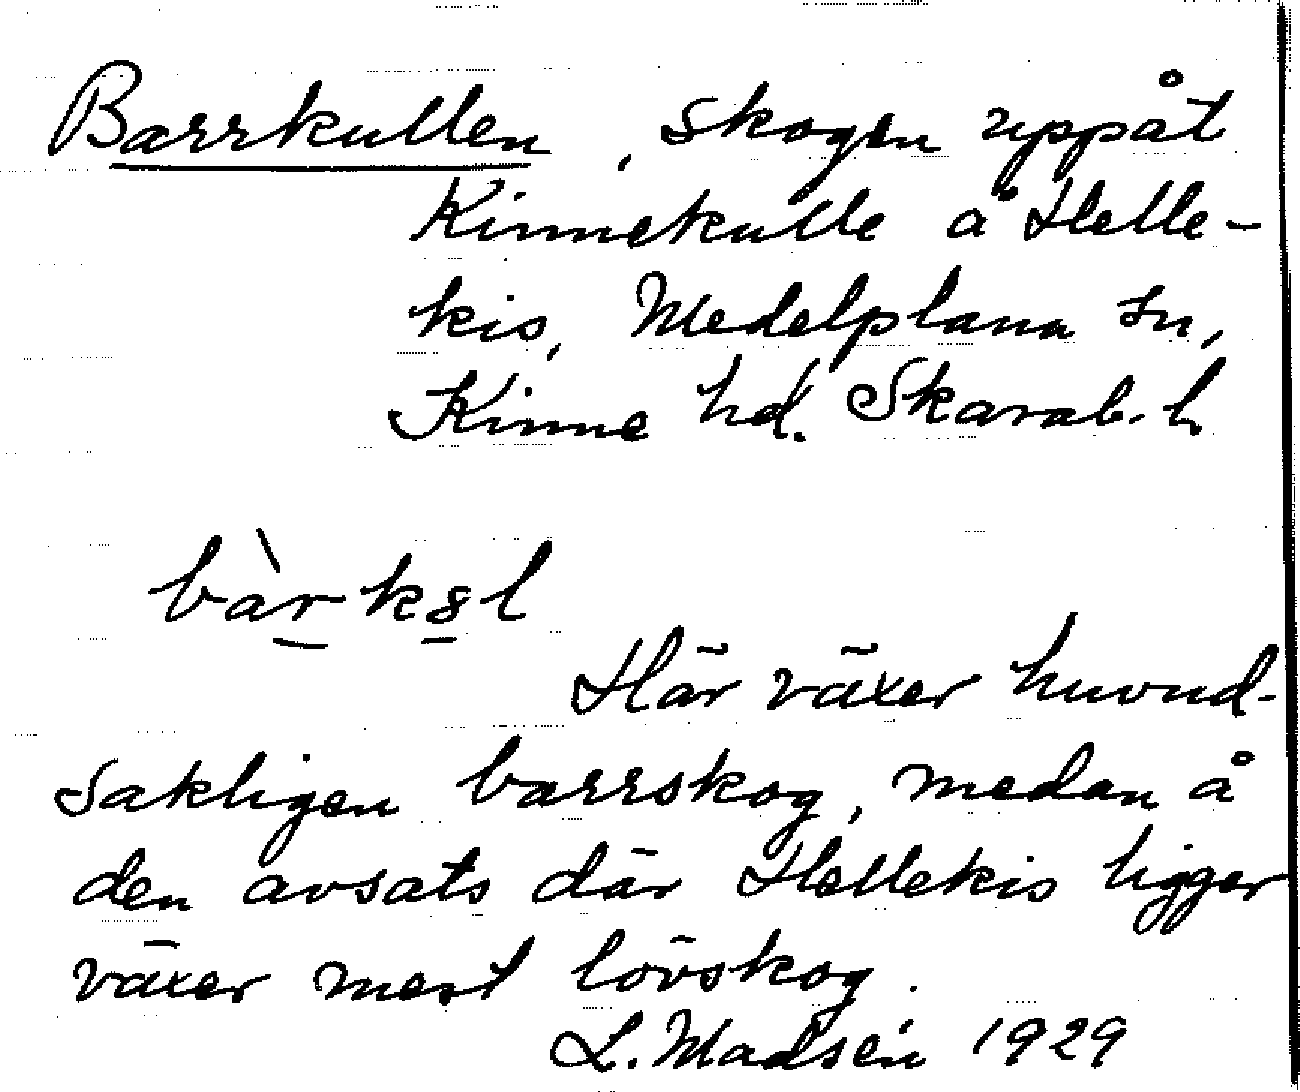 Barrkullen, skogen uppåt
Kinnekulle å Helle-
kis, Medelplana sn,
Kinne hd. Skarab. l.
bàrksl
Här växer huvud-
sakligen barrskog, medan å
den avsats där Hellekis ligger
växer mest lövskog.
L. Madsén 1929